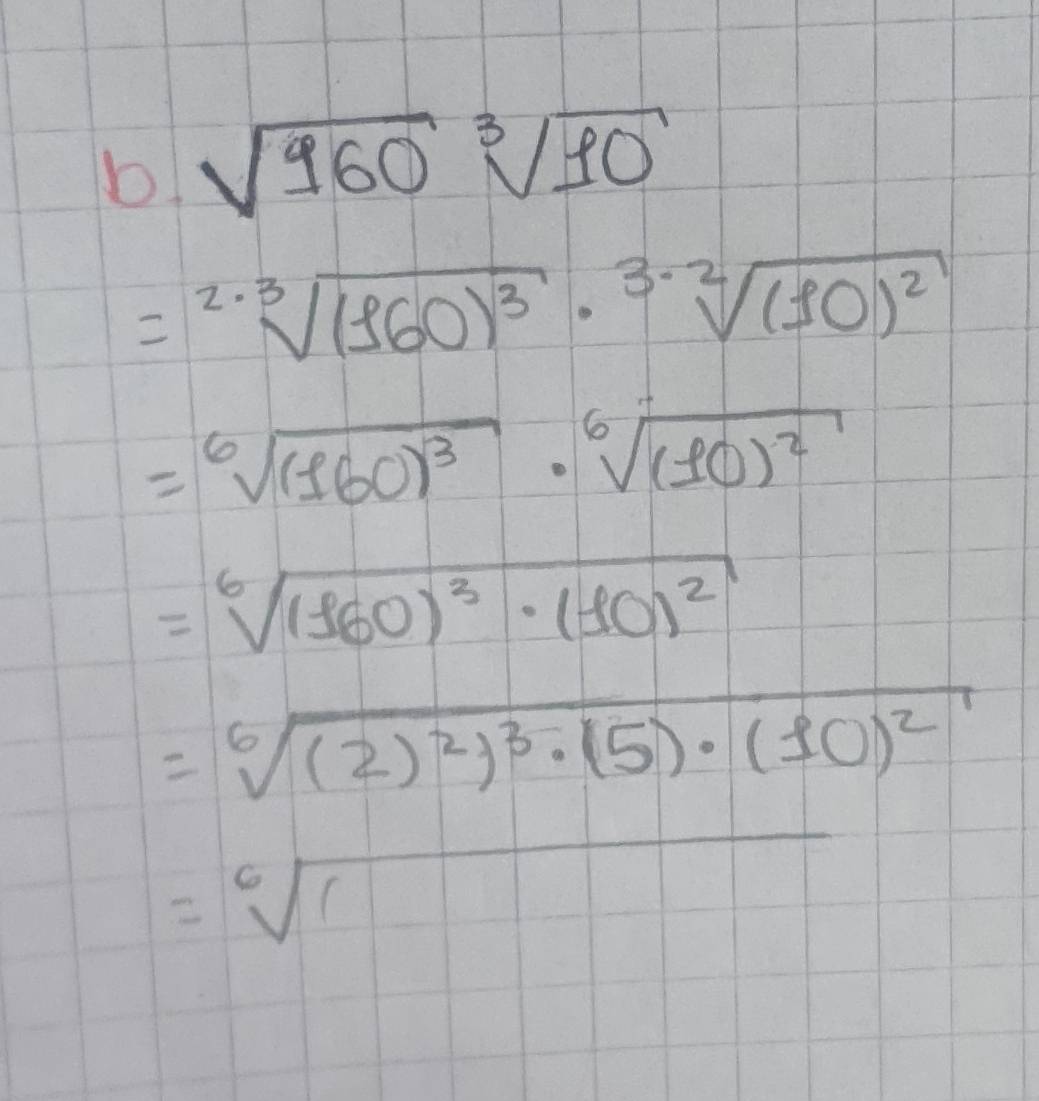 b. √160 ³√10
= ²·³√(160)³ · ³·²√(10)²
= ⁶√(160)³ · ⁶√(10)²
= ⁶√(160)³ · (10)²
= ⁶√(2)²)³ · (5) · (10)²
= ⁶√(